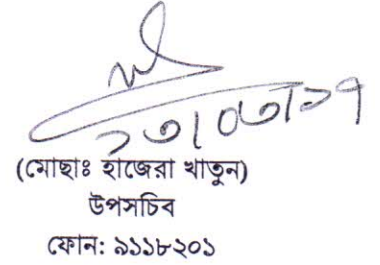 ২৩/০৩/১৭
(মোছাঃ হাজেরা খাতুন)
উপসচিব
ফোন: ৯১১৮২০১